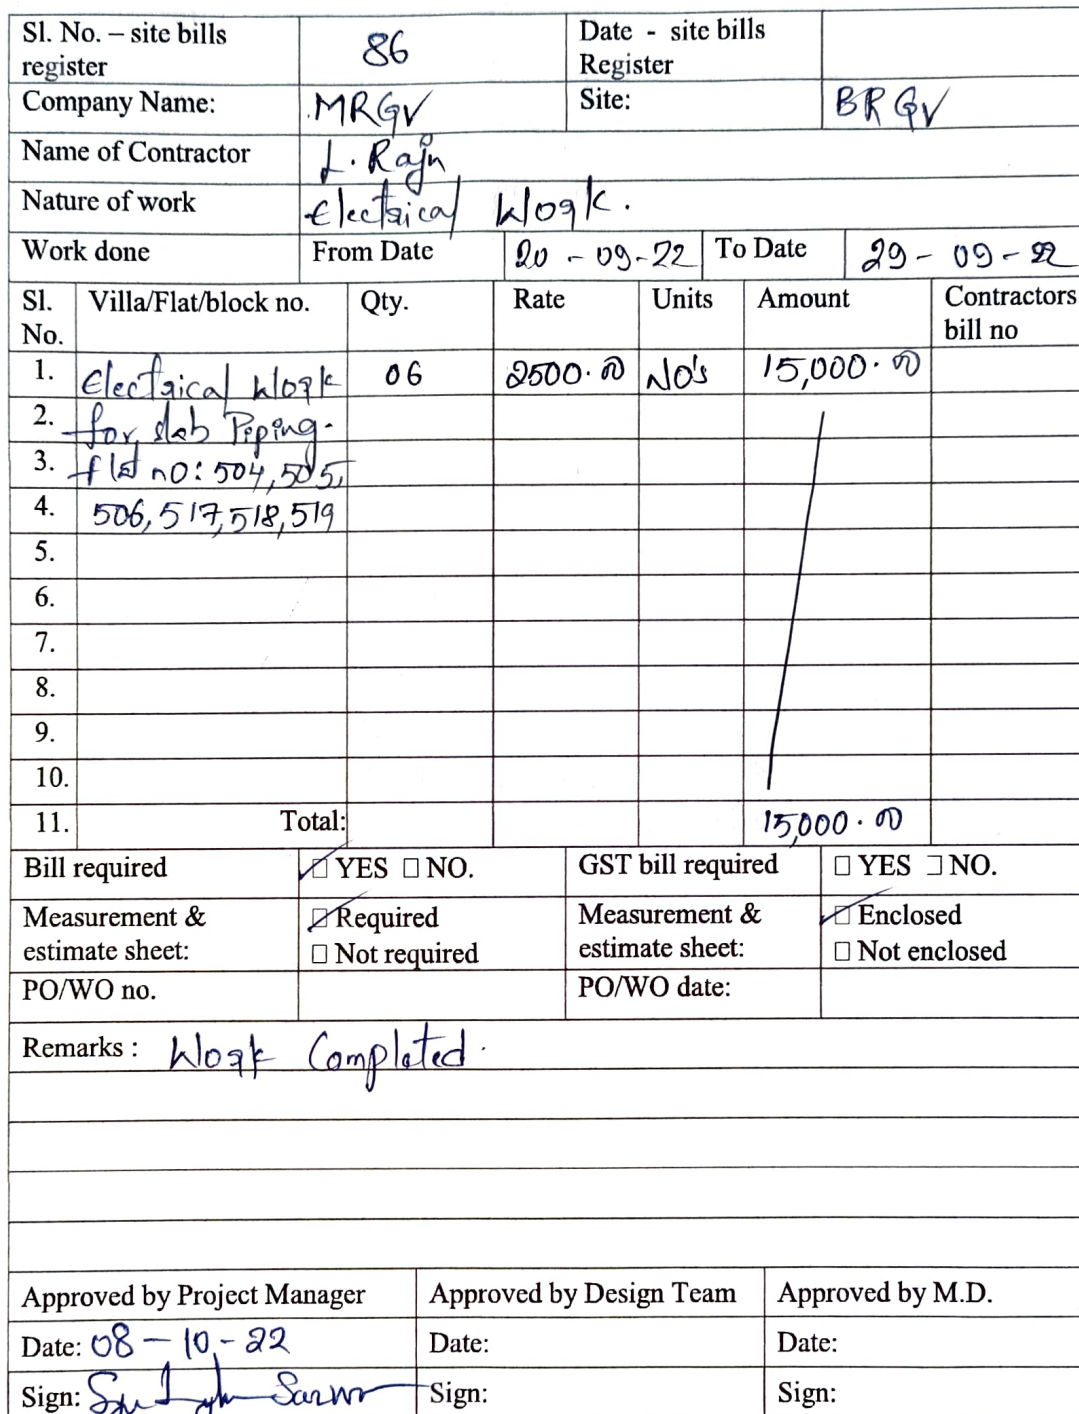 Sl. No. – site bills register 86 Date - site bills Register
Company Name: MRGV Site: BRGV
Name of Contractor L. Raju
Nature of work Electrical Work.
Work done From Date 20 - 09-22 To Date 29 - 09 - 22
Sl. No. Villa/Flat/block no. Qty. Rate Units Amount Contractors bill no
1. Electrical Work 06 2500.00 NO's 15,000.00
2. for slab Piping.
3. flat no: 504, 505,
4. 506, 517, 518, 519
5.
6.
7.
8.
9.
10.
11. Total: 15,000.00
Bill required ☑ YES ☐ NO. GST bill required ☐ YES ☐ NO.
Measurement & estimate sheet: ☑ Required ☐ Not required Measurement & estimate sheet: ☑ Enclosed ☐ Not enclosed
PO/WO no. PO/WO date:
Remarks : Work Completed.
Approved by Project Manager Approved by Design Team Approved by M.D.
Date: 08 - 10 - 22 Date: Date:
Sign: Sign: Sign: